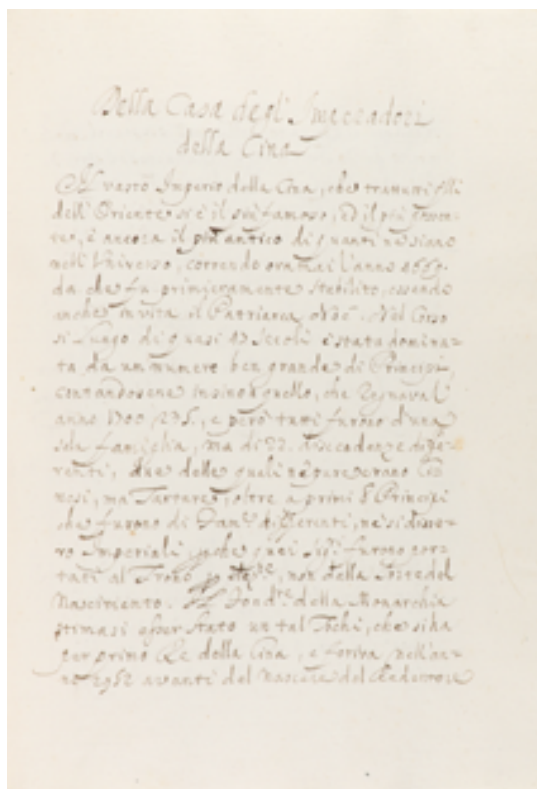 Della Casa degl' Imperadori
della Cina
Il vasto Imperio della Cina, che tra tutti qlli
dell' Oriente si è il più famoso, ed il più poten-
te, è ancora il più antico di quanti ne siano
nell' Universo, correndo oramai l'anno
da che fu primieramente stabilito, essendo
anche in vita il Patriarca Noè. Nel Corso
sì lungo di quasi 47 secoli è stata domina-
ta da un numero ben grande di Principi,
contandosene insino a quello, che regnava l'
anno 1700, 235., e però tutti furono d'una
sola famiglia, ma di 22. discendenze diffe-
renti, due delle quali nè pure erano Ci-
nesi, ma Tartare, oltre a primi 8 Principi
che furono di Fam.e differenti, nè si disse-
ro Imperiali, poiche quei furono por-
tati al Trono non della sorte del
Nascimento. Il Fond.re della Monarchia
stimasi esser stato un tal Fochi, che si ha
per primo Re della Cina, e fioriva nell'an-
no 2952 avanti del nascere del Redentore